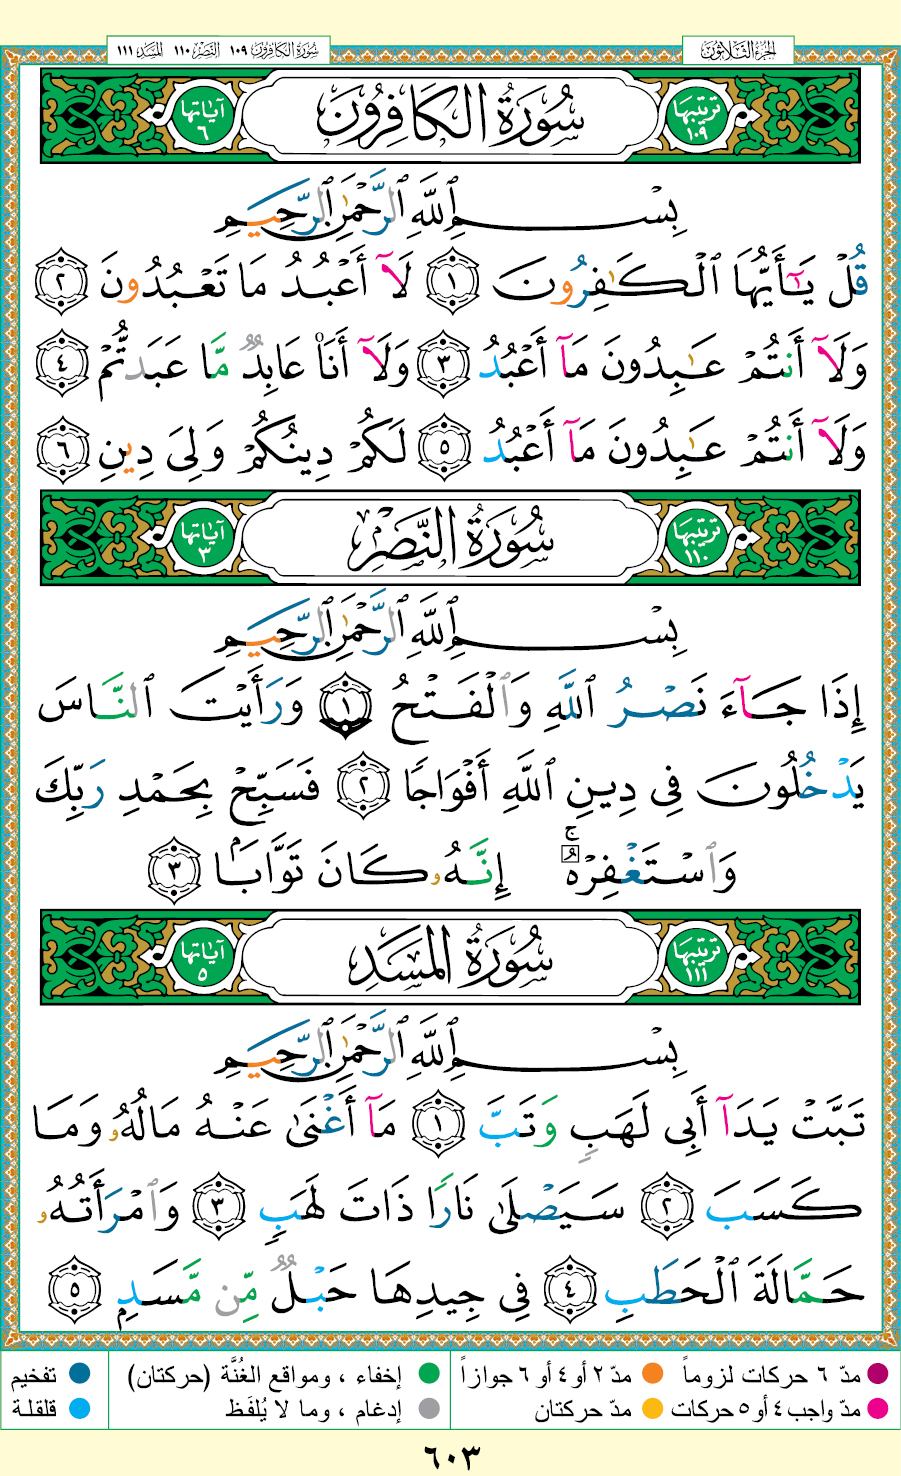 الجزء الثلاثون
سورة الكافرون ١٠٩ النصر ١١٠ المسد ١١١
ترتيبها ١٠٩ سُورَةُ الكَافِرُونَ آياتها ٦
بِسْمِ ٱللَّهِ ٱلرَّحْمَٰنِ ٱلرَّحِيمِ
قُلْ يَٰٓأَيُّهَا ٱلْكَٰفِرُونَ ١ لَآ أَعْبُدُ مَا تَعْبُدُونَ ٢
وَلَآ أَنتُمْ عَٰبِدُونَ مَآ أَعْبُدُ ٣ وَلَآ أَنَا۠ عَابِدٌ مَّا عَبَدتُّمْ ٤
وَلَآ أَنتُمْ عَٰبِدُونَ مَآ أَعْبُدُ ٥ لَكُمْ دِينُكُمْ وَلِىَ دِينِ ٦
ترتيبها ١١٠ سُورَةُ النَّصْرِ آياتها ٣
بِسْمِ ٱللَّهِ ٱلرَّحْمَٰنِ ٱلرَّحِيمِ
إِذَا جَآءَ نَصْرُ ٱللَّهِ وَٱلْفَتْحُ ١ وَرَأَيْتَ ٱلنَّاسَ
يَدْخُلُونَ فِى دِينِ ٱللَّهِ أَفْوَاجًا ٢ فَسَبِّحْ بِحَمْدِ رَبِّكَ
وَٱسْتَغْفِرْهُ ۚ إِنَّهُۥ كَانَ تَوَّابَۢا ٣
ترتيبها ١١١ سُورَةُ المَسَدِ آياتها ٥
بِسْمِ ٱللَّهِ ٱلرَّحْمَٰنِ ٱلرَّحِيمِ
تَبَّتْ يَدَآ أَبِى لَهَبٍ وَتَبَّ ١ مَآ أَغْنَىٰ عَنْهُ مَالُهُۥ وَمَا
كَسَبَ ٢ سَيَصْلَىٰ نَارًا ذَاتَ لَهَبٍ ٣ وَٱمْرَأَتُهُۥ
حَمَّالَةَ ٱلْحَطَبِ ٤ فِى جِيدِهَا حَبْلٌ مِّن مَّسَدٍۭ ٥
مدّ ٦ حركات لزوماً مدّ ٢ أو ٤ أو ٦ جوازاً إخفاء ، ومواقع الغُنَّة (حركتان) تفخيم
مدّ واجب ٤ أو ٥ حركات مدّ حركتان إدغام ، وما لا يُلفَظ قلقلة
٦٠٣